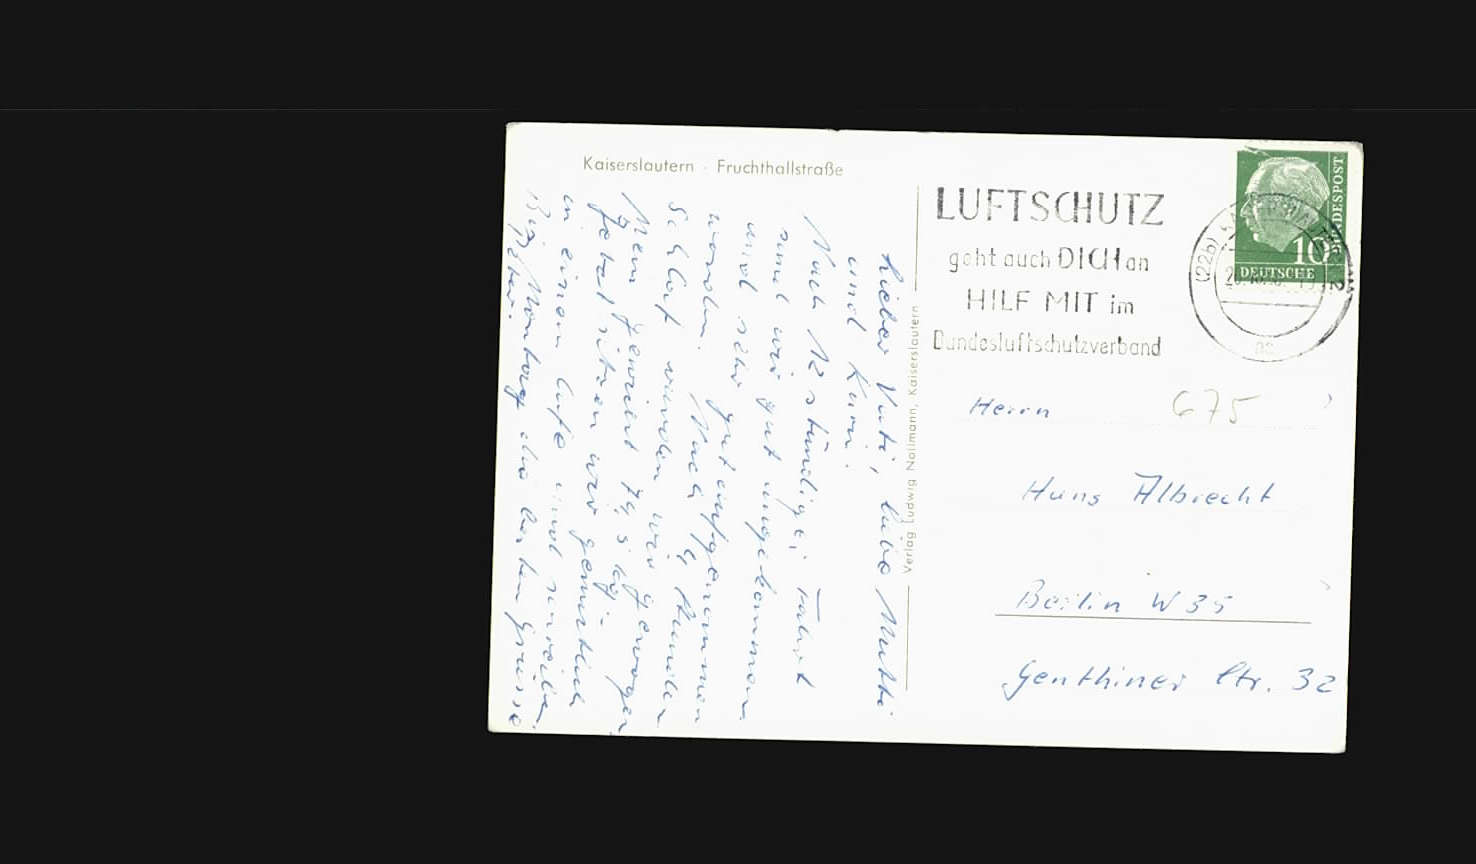 Kaiserslautern · Fruchthallstraße
Lieber Vati, liebe Mutti
und Kuni!
Nach 12 stündiger Fahrt
sind wir gut angekommen
und sehr gut aufgenommen
worden. Nach 4 Stunden
Schlaf wurden wir gewogen
Mein Gewicht 74,5 kg.
Jetzt sitzen wir gemütlich
in einem Cafe und schreiben.
Bis Montag die besten Grüsse
Peter.
Verlag Ludwig Nollmann, Kaiserslautern
LUFTSCHUTZ
geht auch DICH an
HILF MIT im
Bundesluftschutzverband
(22b)
10
DEUTSCHE
BUNDESPOST
Herrn
675
Hans Albrecht
Berlin W 35
Genthiner Str. 32